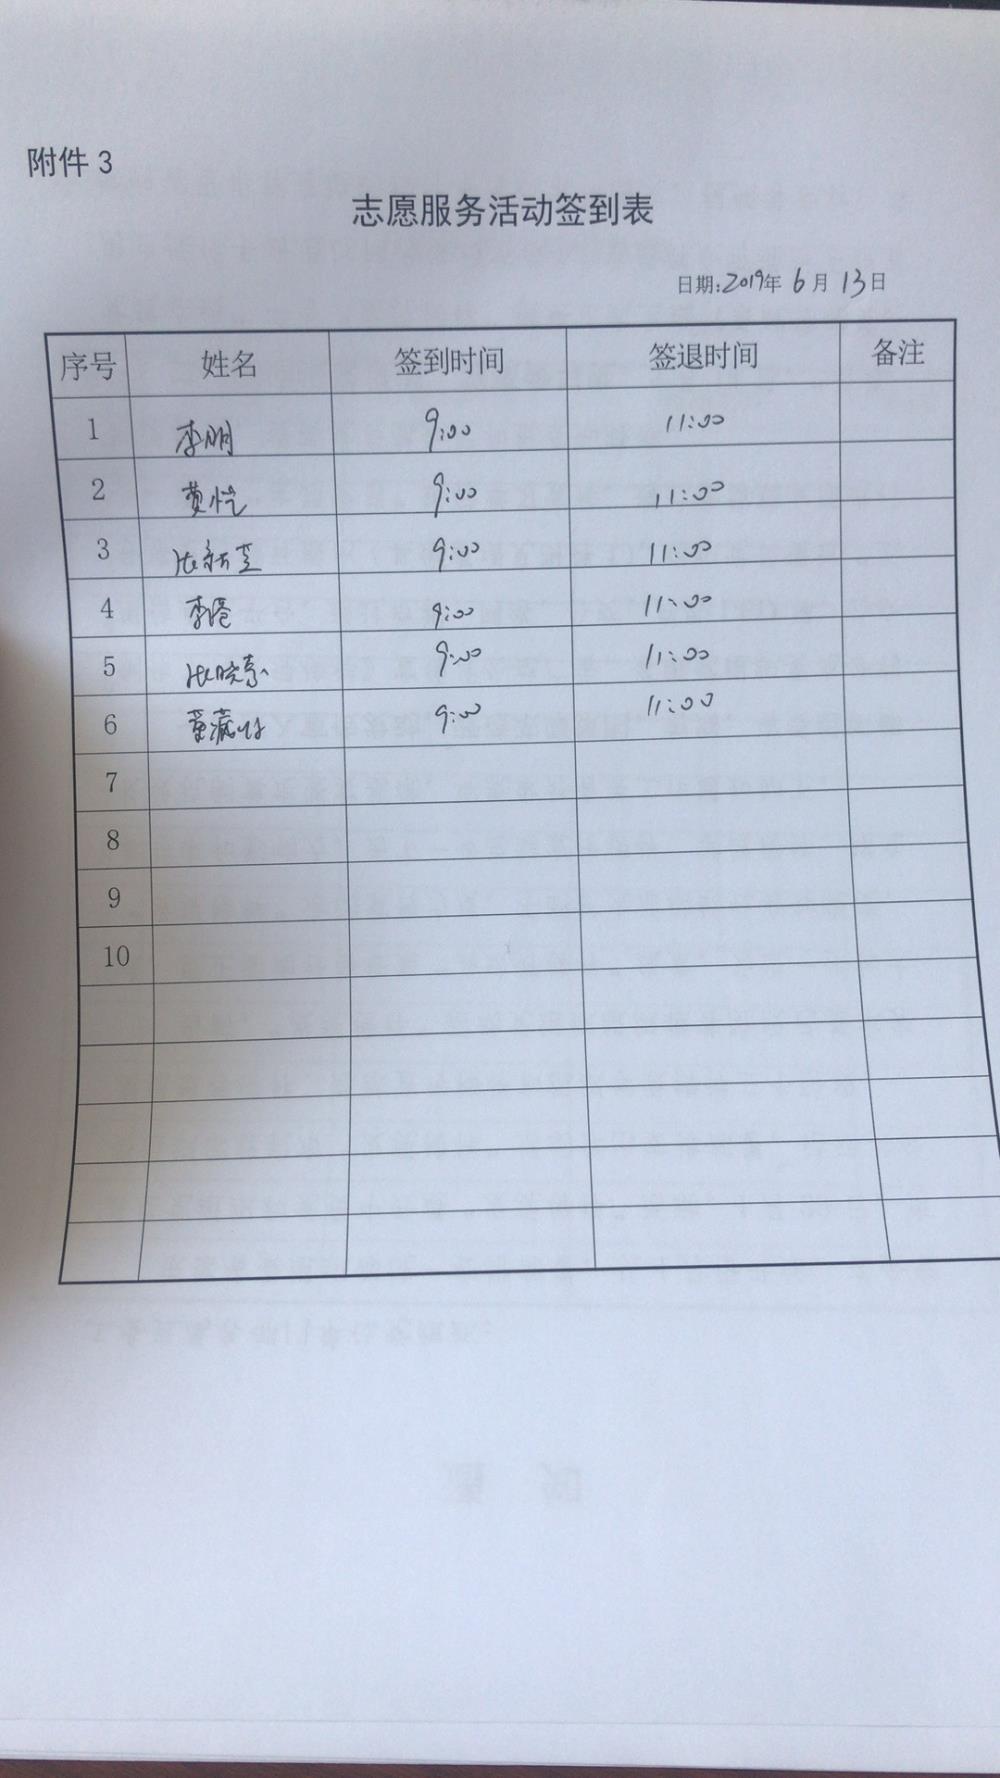 附件 3
志愿服务活动签到表
日期:2019年 6月 13日
序号 姓名 签到时间 签退时间 备注
1 李明 9:00 11:00
2 黄恺 9:00 11:00
3 9:00 11:00
4 9:00 11:00
5 9:00 11:00
6 9:00 11:00
7
8
9
10